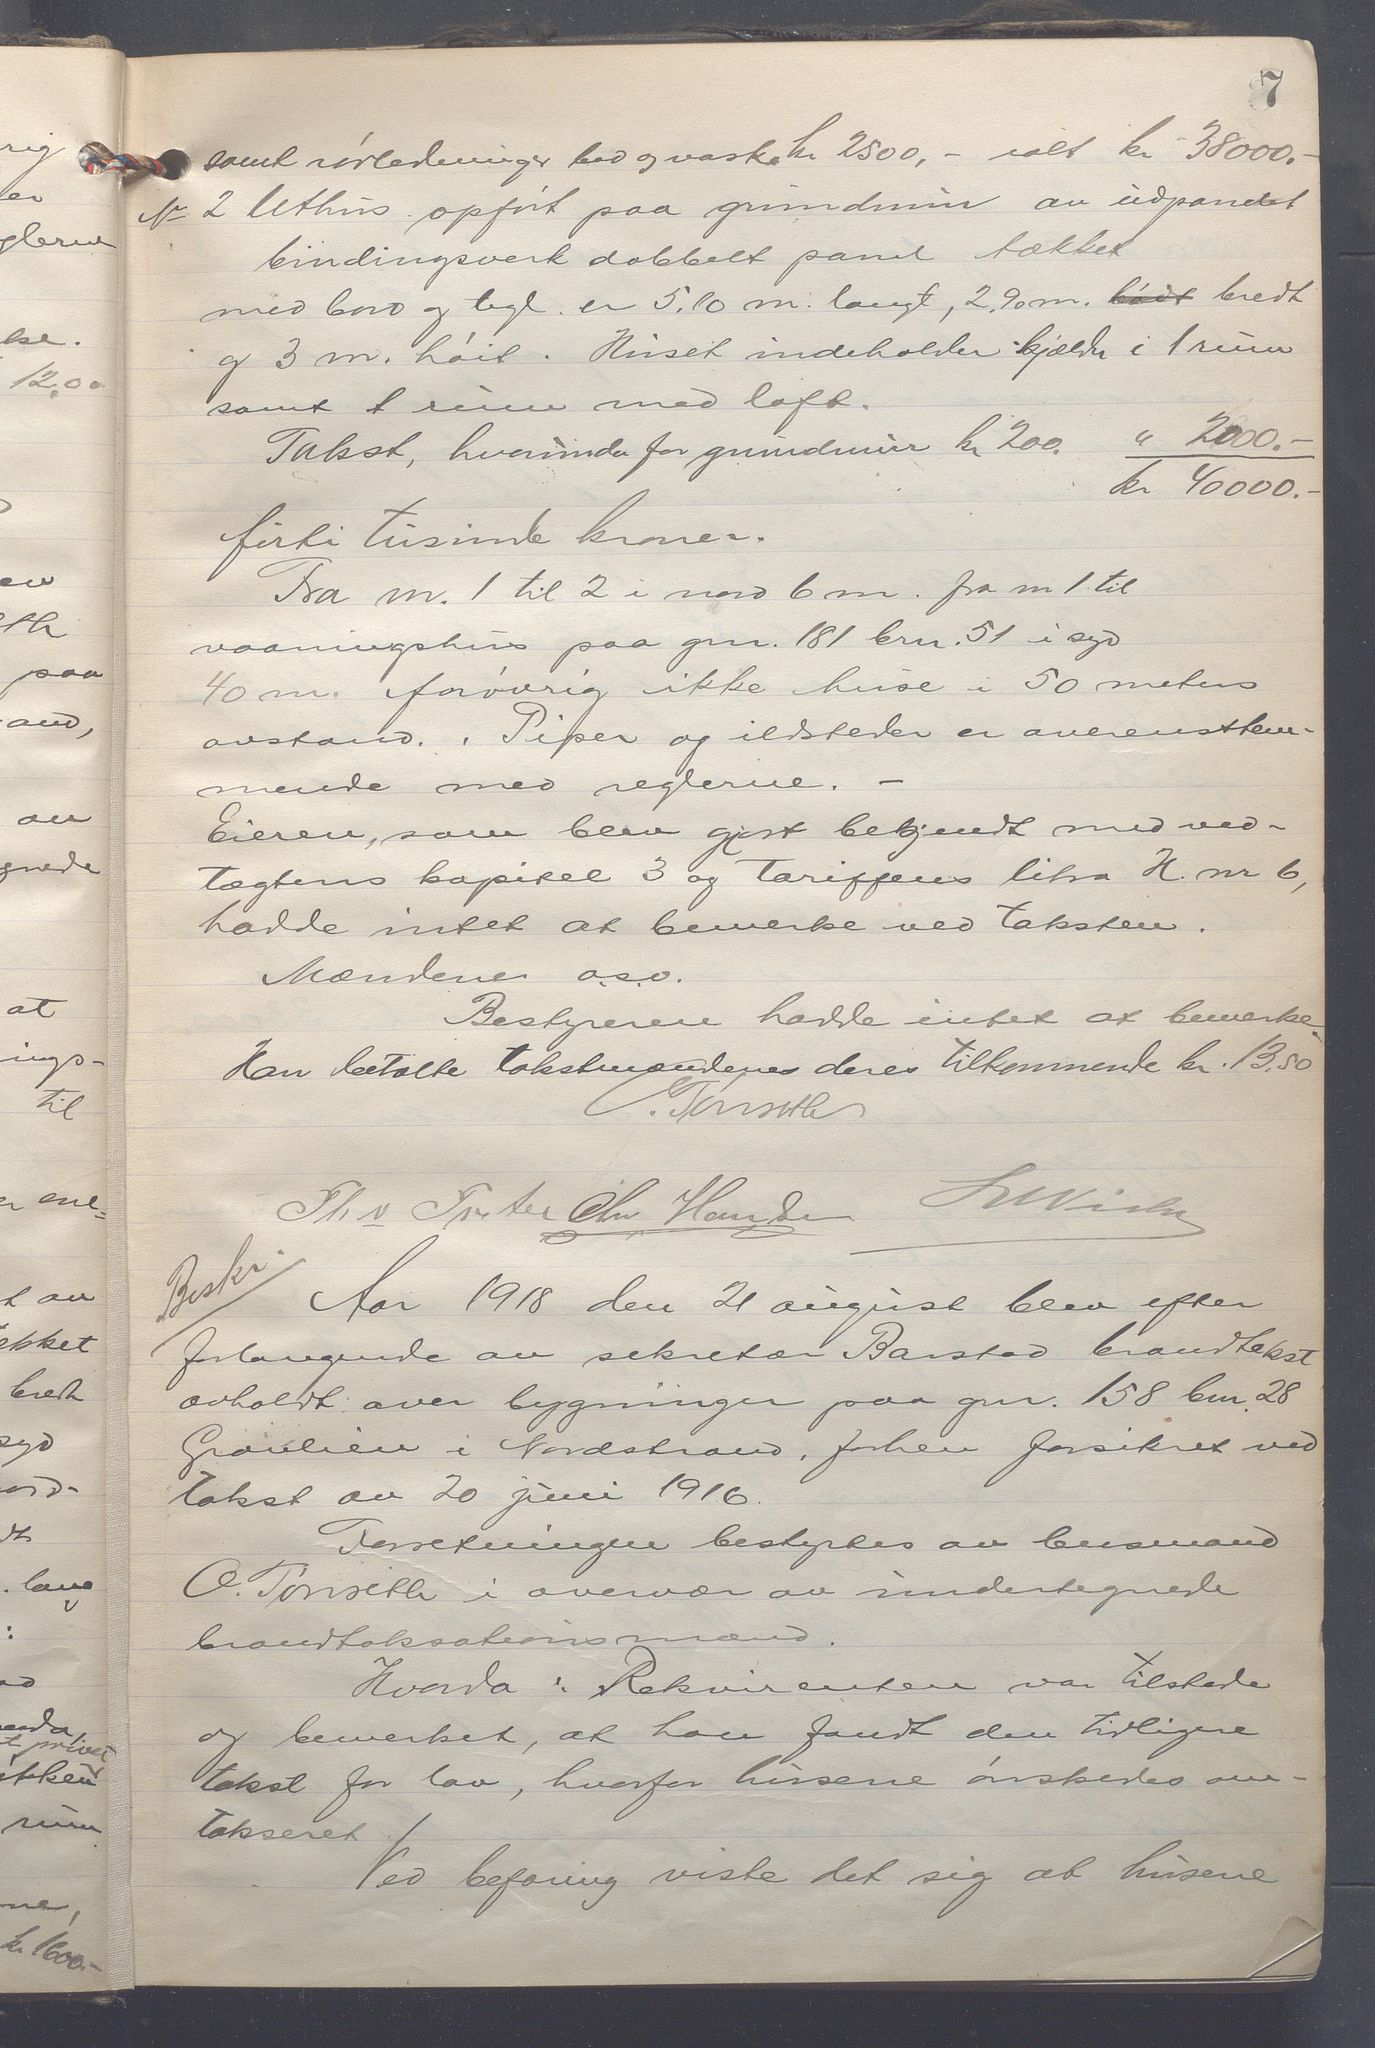 7
samt rørledninger bad og vaske kr 2500,- ialt kr 38000.-
Nr 2 Uthus opført paa grundmur av udpanelt
bindingsverk dobbelt panel tækket
med bord og tegl. er 5,10 m. langt, 2,90 m. bredt
og 3 m. høit. Huset indeholder kjælder i 1 rum
samt 1 rum med loft.
Takst, hvorunder for grundmur kr 200. " 2000.-
kr 40000.-
førti tusinde kroner.
Fra nr. 1 til 2 i nord 6 m. fra nr 1 til
vaaningshus paa gnr. 181 brn. 51 i syd
40 m. forøvrig ikke huse i 50 meters
avstand. Piper og ildsteder er overensstem-
mende med reglerne. -
Eieren, som blev gjort bekjendt med ved-
tægtens kapitel 3 og tariffens litra H. nr 6,
hadde intet at bemerke ved taksten.
Mændene o.s.v.
Bestyreren hadde intet at bemerke.
Han betalte takstmændenes deres tilkommende kr. 13,50
O. Tonseth
Beskr.
Aar 1918 den 21 august blev efter
forlangende av sekretær Barstad brandtakst
avholdt over bygninger paa gnr. 158 bnr. 28
Granlien i Nordstrand, forhen forsikret ved
takst av 20 juni 1916.
Forretningen bestyrtes av lensmand
O. Tonseth i overvær av undertegnede
brandtaksationsmænd.
Hvorda: Rekvirenten var tilstede
og bemerket, at han fandt den tidligere
takst for lav, hvorfor husene ønskedes om-
takseret.
Ved befaring viste det sig at husene